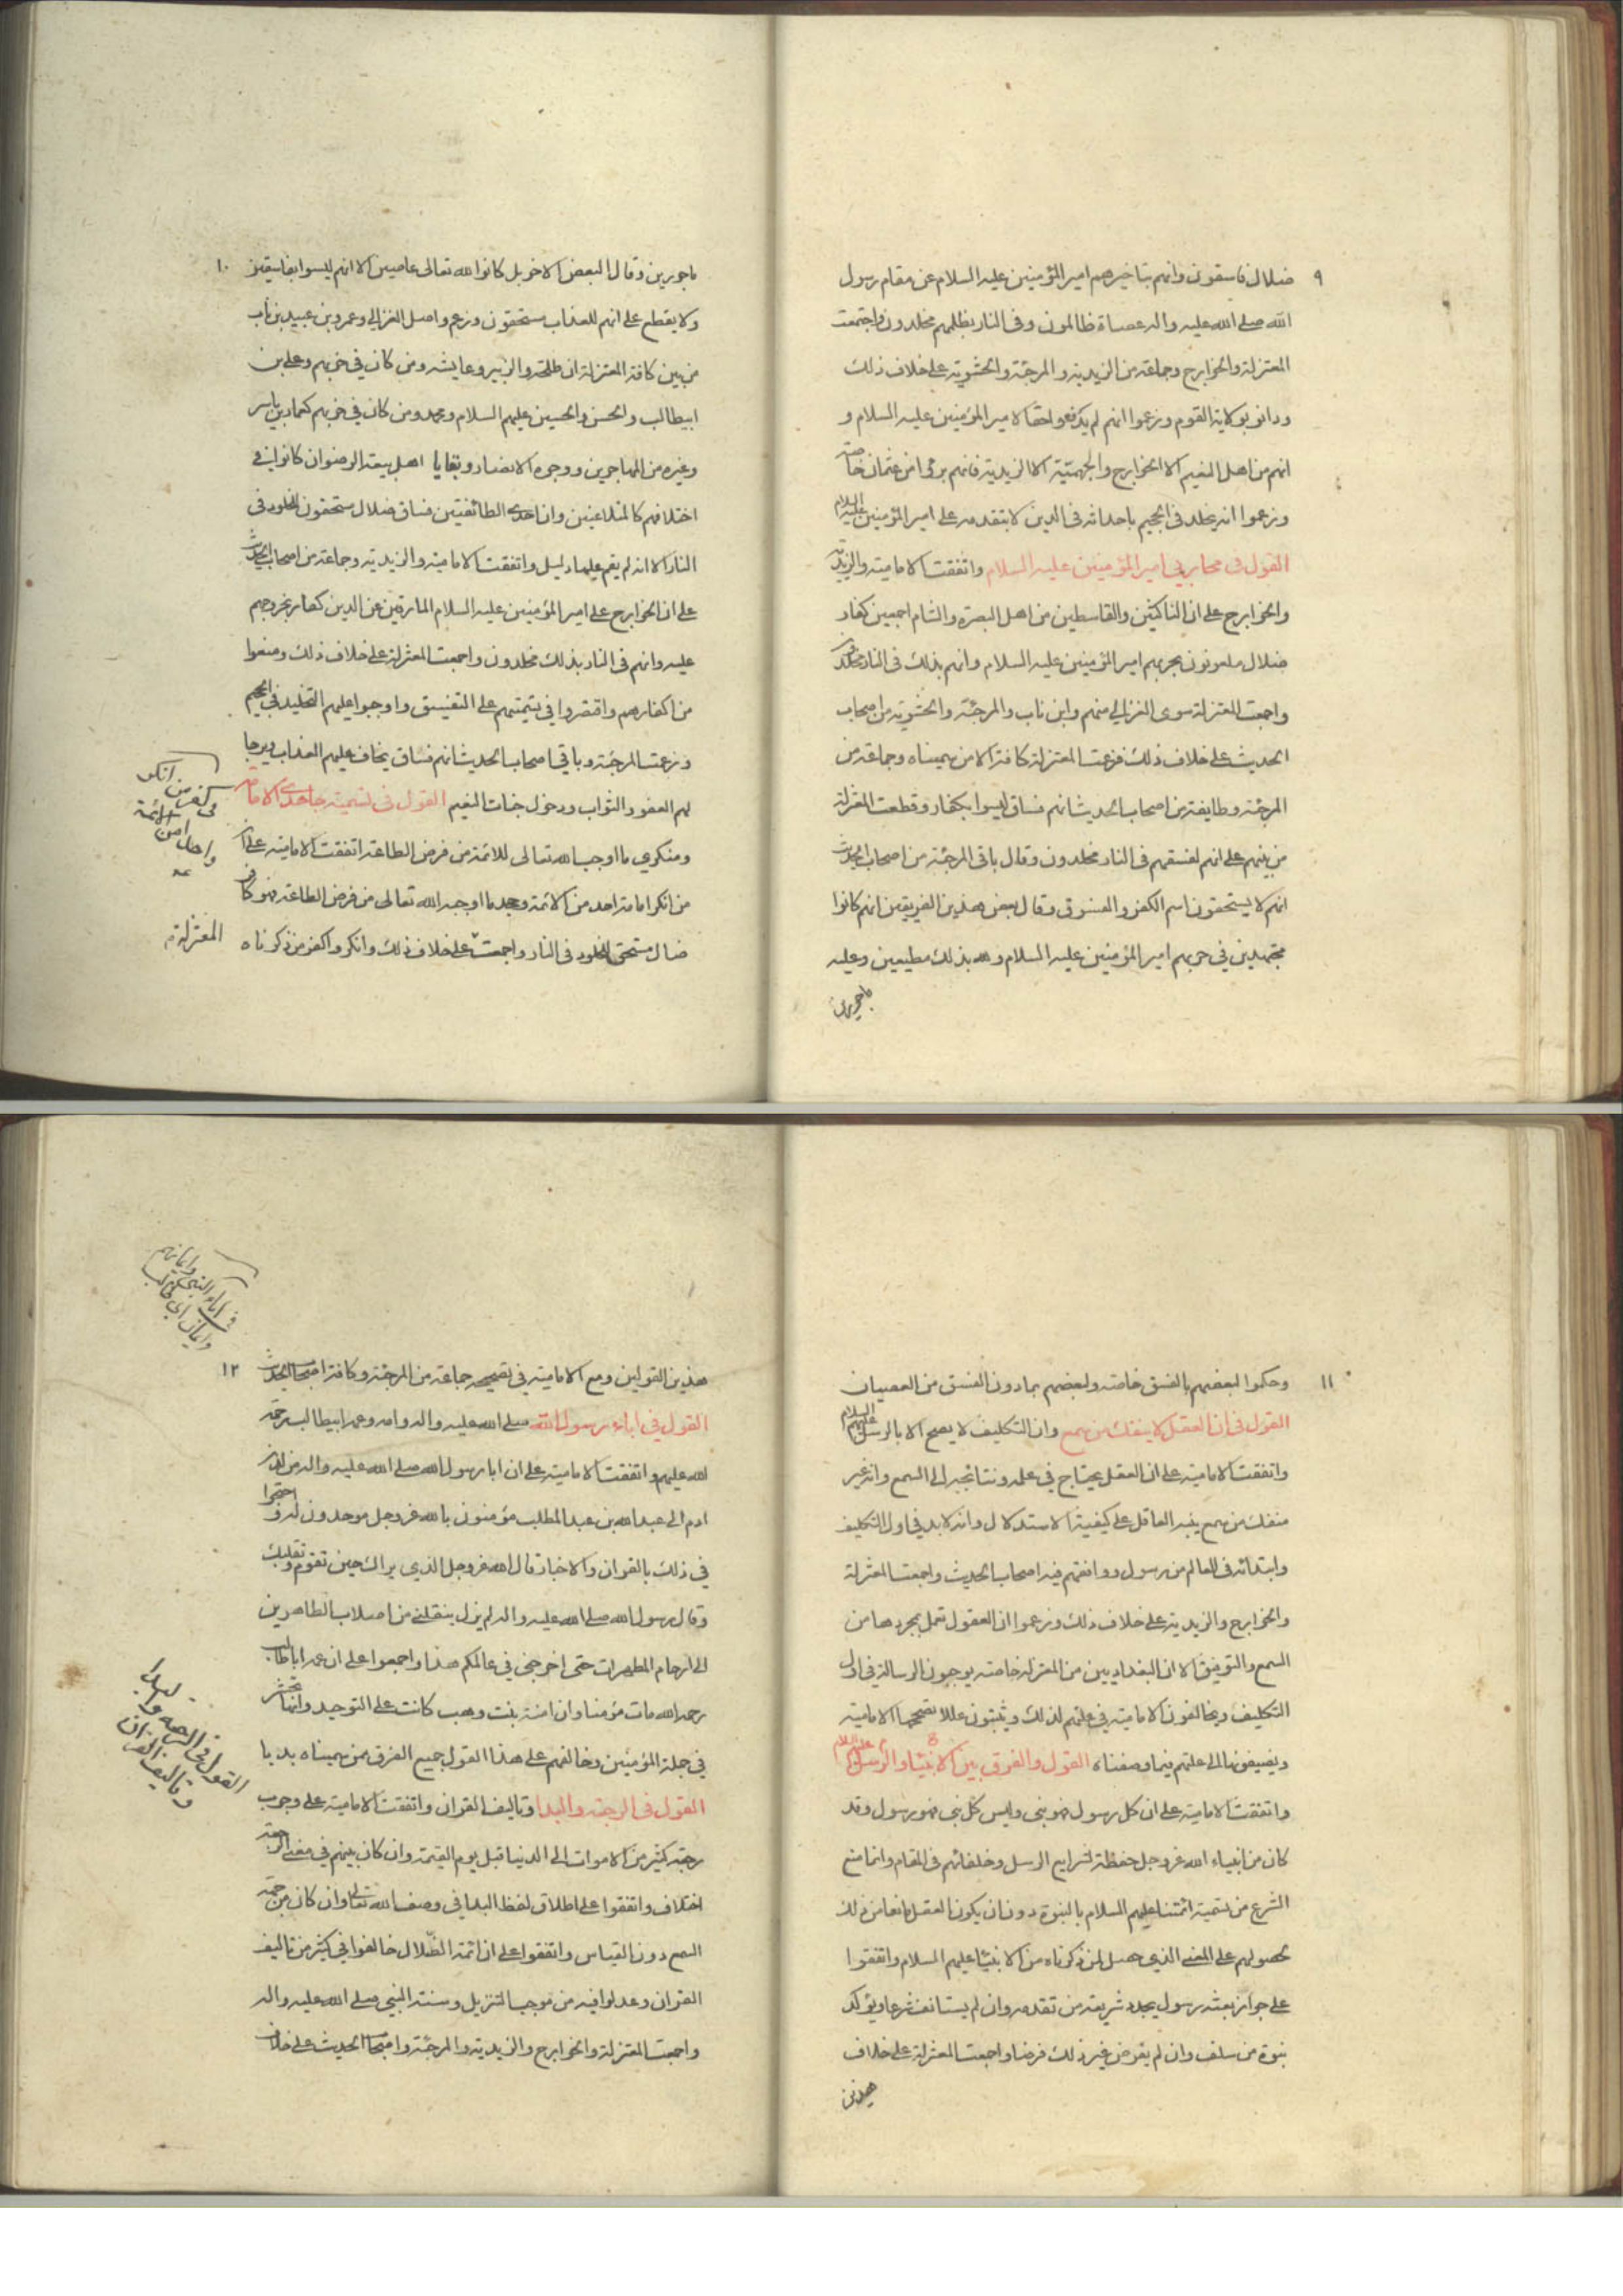 ٩
ضلال فاسقون وانهم بتاخيرهم امير المؤمنين عليه السلام عن مقام رسول
الله صلى الله عليه واله عصاة ظالمون وفى النار بظلمهم مخلدون واجتمعت
المعتزلة والخوارج وجماعة من الزيدية والمرجئة والحشوية على خلاف ذلك
ودانو بولاية القوم وزعموا انهم لم يدفعو حقا لامير المؤمنين عليه السلام و
انهم من اهل النعيم الا الخوارج والجهمية الا الزيدية فانهم برؤا من عثمان خاصة
وزعموا انه يخلد فى الجحيم باحداثه فى الدين لا بتقدمه على امير المؤمنين عليه السلام
القول فى محاربي امير المؤمنين عليه السلام واتفقت الامامية والزيدية
والخوارج على ان الناكثين والقاسطين من اهل البصرة والشام اجمعين كفار
ضلال ملعونون بحربهم امير المؤمنين عليه السلام وانهم بذلك فى النار مخلدون
واجمعت المعتزلة سوى الغزالي منهم وابن باب والمرجئة والحشوية من اصحاب
الحديث على خلاف ذلك فزعمت المعتزلة كافة الا من سميناه وجماعة من
المرجئة وطايفة من اصحاب الحديث انهم فساق ليسوا بكفار وقطعت المعتزلة
من بينهم على انهم لفسقهم فى النار مخلدون وقال باقى المرجئة من اصحاب الحديث
انهم لا يستحقون اسم الكفر والفسوق وقال بعض هذين الفريقين انهم كانوا
مجتهدين في حربهم امير المؤمنين عليه السلام ولله بذلك مطيعين وعليه
ماجورين
١٠
ماجورين وقال البعض الاخر بل كانوا لله تعالى عاصين الا انهم ليسوا بفاسقين
ولا يقطع على انهم للعذاب مستحقون وزعم واصل الغزالي وعمرو بن عبيد بن باب
من بين كافة المعتزلة ان طلحة والزبير وعايشه ومن كان في حربهم وعلى بن
ابيطالب والحسن والحسين عليهم السلام ومحمد ومن كان في حزبهم كعمار بن ياسر
وغيره من المهاجرين ووجوه الانصار وبقايا اهل بيعة الرضوان كانوا في
اختلافهم كالمتلاعنين وان احدى الطائفتين فساق ضلال مستحقون للخلود فى
النار الا انه لم يقم عليها دليل واتفقت الامامية والزيدية وجماعة من اصحاب الحديث
على ان الخوارج على امير المؤمنين عليه السلام المارقين عن الدين كفار بخروجهم
عليه وانهم فى النار بذلك مخلدون واجمعت المعتزلة على خلاف ذلك ومنعوا
من اكفارهم واقتصروا في تسميتهم على التفسيق واوجبوا عليهم التخليد في الجحيم
وزعمت المرجئة وباقي اصحاب الحديث انهم فساق يخاف عليهم العذاب ويرجا
لهم العفو والثواب ودخول جنات النعيم القول فى تسمية جاحدى الامامة
ومنكري ما اوجب الله تعالى للائمة من فرض الطاعة اتفقت الامامية على ان
من انكر امامة احد من الائمة وجحد ما اوجبه الله تعالى من فرض الطاعة فهو كافر
ضال مستحق للخلود فى النار واجمعت على خلاف ذلك وانكروا كفر من ذكرناه
في كفر من انكر
واحدا من الائمة
المعتزلة
١١
وحكموا لبعضهم بالفسق خاصة ولبعضهم بما دون الفسق من العصيان
القول فى ان العقل لا ينفك من سمع وان التكليف لا يصح الا بالرسل عليهم السلام
واتفقت الامامية على ان العقل يحتاج في علمه ونتائجه الى السمع وانه غير
منفك من سمع ينبه العاقل على كيفية الاستدلال وانه لا بد في اول التكليف
وابتدائه فى العالم من رسول ووافقهم فيه اصحاب الحديث واجمعت المعتزلة
والخوارج والزيدية على خلاف ذلك وزعموا ان العقول تعمل بمجردها من
السمع والتوفيق الا ان البغداديين من المعتزلة خاصة يوجبون الرسالة في اول
التكليف ويخالفون الامامية في علتهم لذلك ويثبتون عللا تصححها الامامية
ويضيفونها الى علتهم فيما وصفناه القول والفرق بين الانبياء والرسل عليهم السلام
واتفقت الامامية على ان كل رسول فهو نبى وليس كل نبى فهو رسول وقد
كان من انبياء الله عز وجل حفظة لشرايع الرسل وخلفائهم فى المقام وانما منع
الشرع من تسمية ائمتنا عليهم السلام بالنبوة دون ان يكون العقل مانعا من ذلك
لحصولهم على المعنى الذي حصل لمن ذكرناه من الانبياء عليهم السلام واتفقوا
على جواز بعثه رسول يجدد شريعة من تقدمه وان لم يستانف شرعا ويؤكد
نبوة من سلف وان لم يفرض غير ذلك فرضا واجمعت المعتزلة على خلاف
هذين
في اباء النبي وايمانهم
وايمان ابي طالب
١٢
هذين القولين ومع الامامية في تصحيحه جماعة من المرجئة وكافة اصحاب الحديث
القول في اباء رسول الله صلى الله عليه واله وامه وعمه ابيطالب رحمة
الله عليهم واتفقت الامامية على ان ابا رسول الله صلى الله عليه واله من لدن
ادم الى عبدالله بن عبدالمطلب مؤمنون بالله عز وجل موحدون له واحتجوا
في ذلك بالقران والاخبار قال الله عز وجل الذي يراك حين تقوم وتقلبك
وقال رسول الله صلى الله عليه واله لم يزل ينقلنى من اصلاب الطاهرين
الى ارحام المطهرات حتى اخرجني في عالمكم هذا واجمعوا على ان عمه اباطالب
رحمه الله مات مؤمنا وان امنة بنت وهب كانت على التوحيد وانها تحشر
في جملة المؤمنين وخالفهم على هذا القول جميع الفرق ممن سميناه بديا
القول فى الرجعة والبدا وتاليف القران واتفقت الامامية على وجوب
رجعة كثير من الاموات الى الدنيا قبل يوم القيمة وان كان بينهم في معنى الرجعة
اختلاف واتفقوا على اطلاق لفظ البدا في وصف الله تعالى وان كان من جهة
السمع دون القياس واتفقوا على ان ائمة الضّلال خالفوا في كثير من تاليف
القران وعدلوا فيه من موجب التنزيل وسنة النبي صلى الله عليه واله
واجمعت المعتزلة والخوارج والزيدية والمرجئة واصحاب الحديث على خلاف
القول في الرجعة والبدا
وتاليف القران